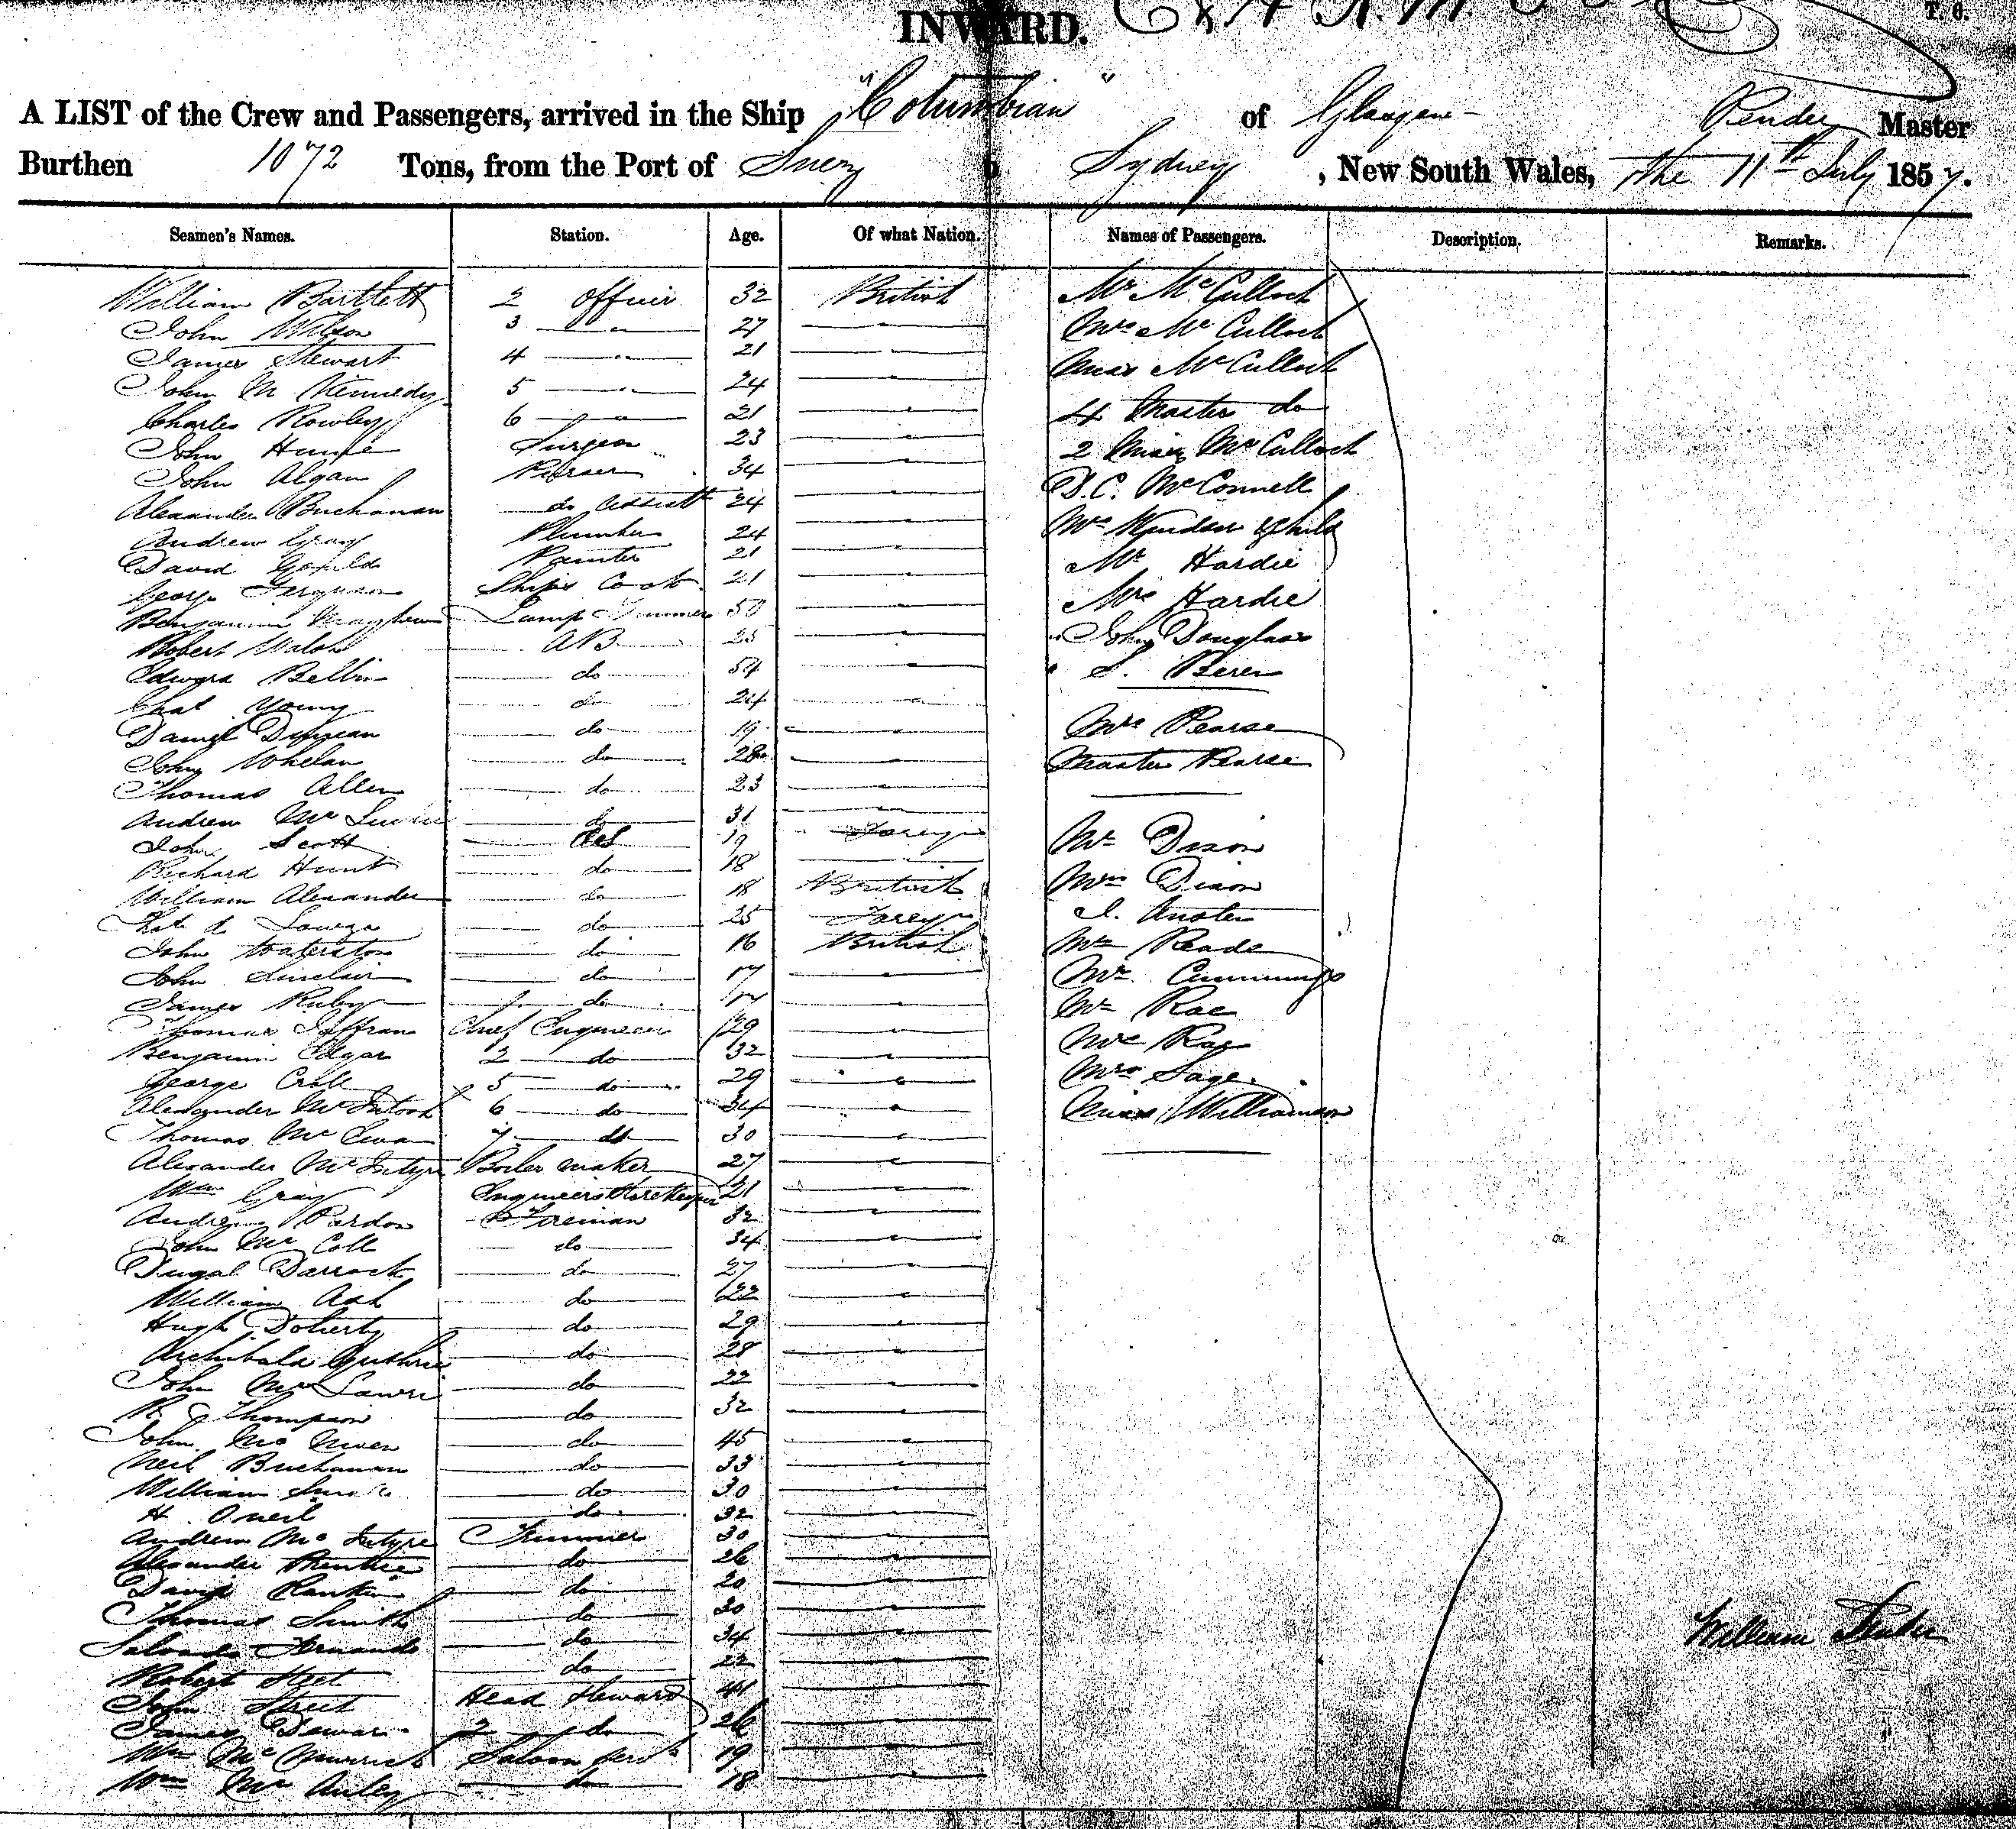 INWARD.
T. 6.
A LIST of the Crew and Passengers, arrived in the Ship "Columbian" of Glasgow Master
Burthen 1072 Tons, from the Port of Suez to Sydney, New South Wales, the 11th July 1857.
Seamen's Names. Station. Age. Of what Nation. Names of Passengers. Description. Remarks.
William Bartlett 2 Officer 32 British Mr McCulloch
John Wilson 3 " 27 " Mrs McCulloch
James Stewart 4 " 21 " Miss McCulloch
John M Kennedy 5 " 24 "
Charles Rowley 6 " 21 " 4 Master do
John Hume Surgeon 23 " 2 Misses McCulloch
John Algan Purser 34 " D.C. McConnell
Alexander Buchanan do Assistt 24 " & Child
Andrew Gray Plumber 24 "
David Painter 21 " Mr Hardie
George Ferguson Ships Cook 21 " Mrs Hardie
Benjamin Lamp Trimmer 50 "
Robert Walsh AB 25 " John Douglass
Edward Belbin do 54 " S. Beren
Chas Young do 24 "
Daniel Duggan do 19 " Mrs Pearse
John Whelan do 28 " Master Pearse
Thomas Allen do 23 "
Andrew Mc do 31 "
John Scott 19 Foreign Mr Dixon
Richard Hunt do 18 "
William Alexander do 18 British Mrs Dixon
do 25 Foreign J. Austen
John Waterston do 16 British Mr Reade
John Sinclair do 17 " Mr Cummings
James Ruby do 17 " Mr Rae
Thomas Chief Engineer 29 " Mrs Rae
Benjamin Edgar 2 do 32 "
George 5 do 29 " Mrs Sage
Alexander McIntosh 6 do 34 " Miss Williamson
Thomas McEwan 7 do 30 "
Alexander McIntyre Boiler maker 27 "
Wm Gray Engineers Storekeeper 21 "
Andrew Pardon Fireman 32 "
John McColl do 34 "
Dugal Darroch do 27 "
William Ash do 22 "
Hugh Doherty do 29 "
Archibald Guthrie do 28 "
John do 22 "
R Thompson do 32 "
John McNiven do 45 "
Neil Buchanan do 33 "
William do 30 "
H. Oneil do 32 "
Andrew McIntyre Trimmer 30 "
Alexander do 26 "
David Rankin do 20 "
Thomas Smith do 30 "
Fernando do 34 "
Robert do 22 "
John Street Head Steward 41 "
James Dewar 2 do 26 "
Wm Saloon 19 "
Wm McAuley do 18 "
William